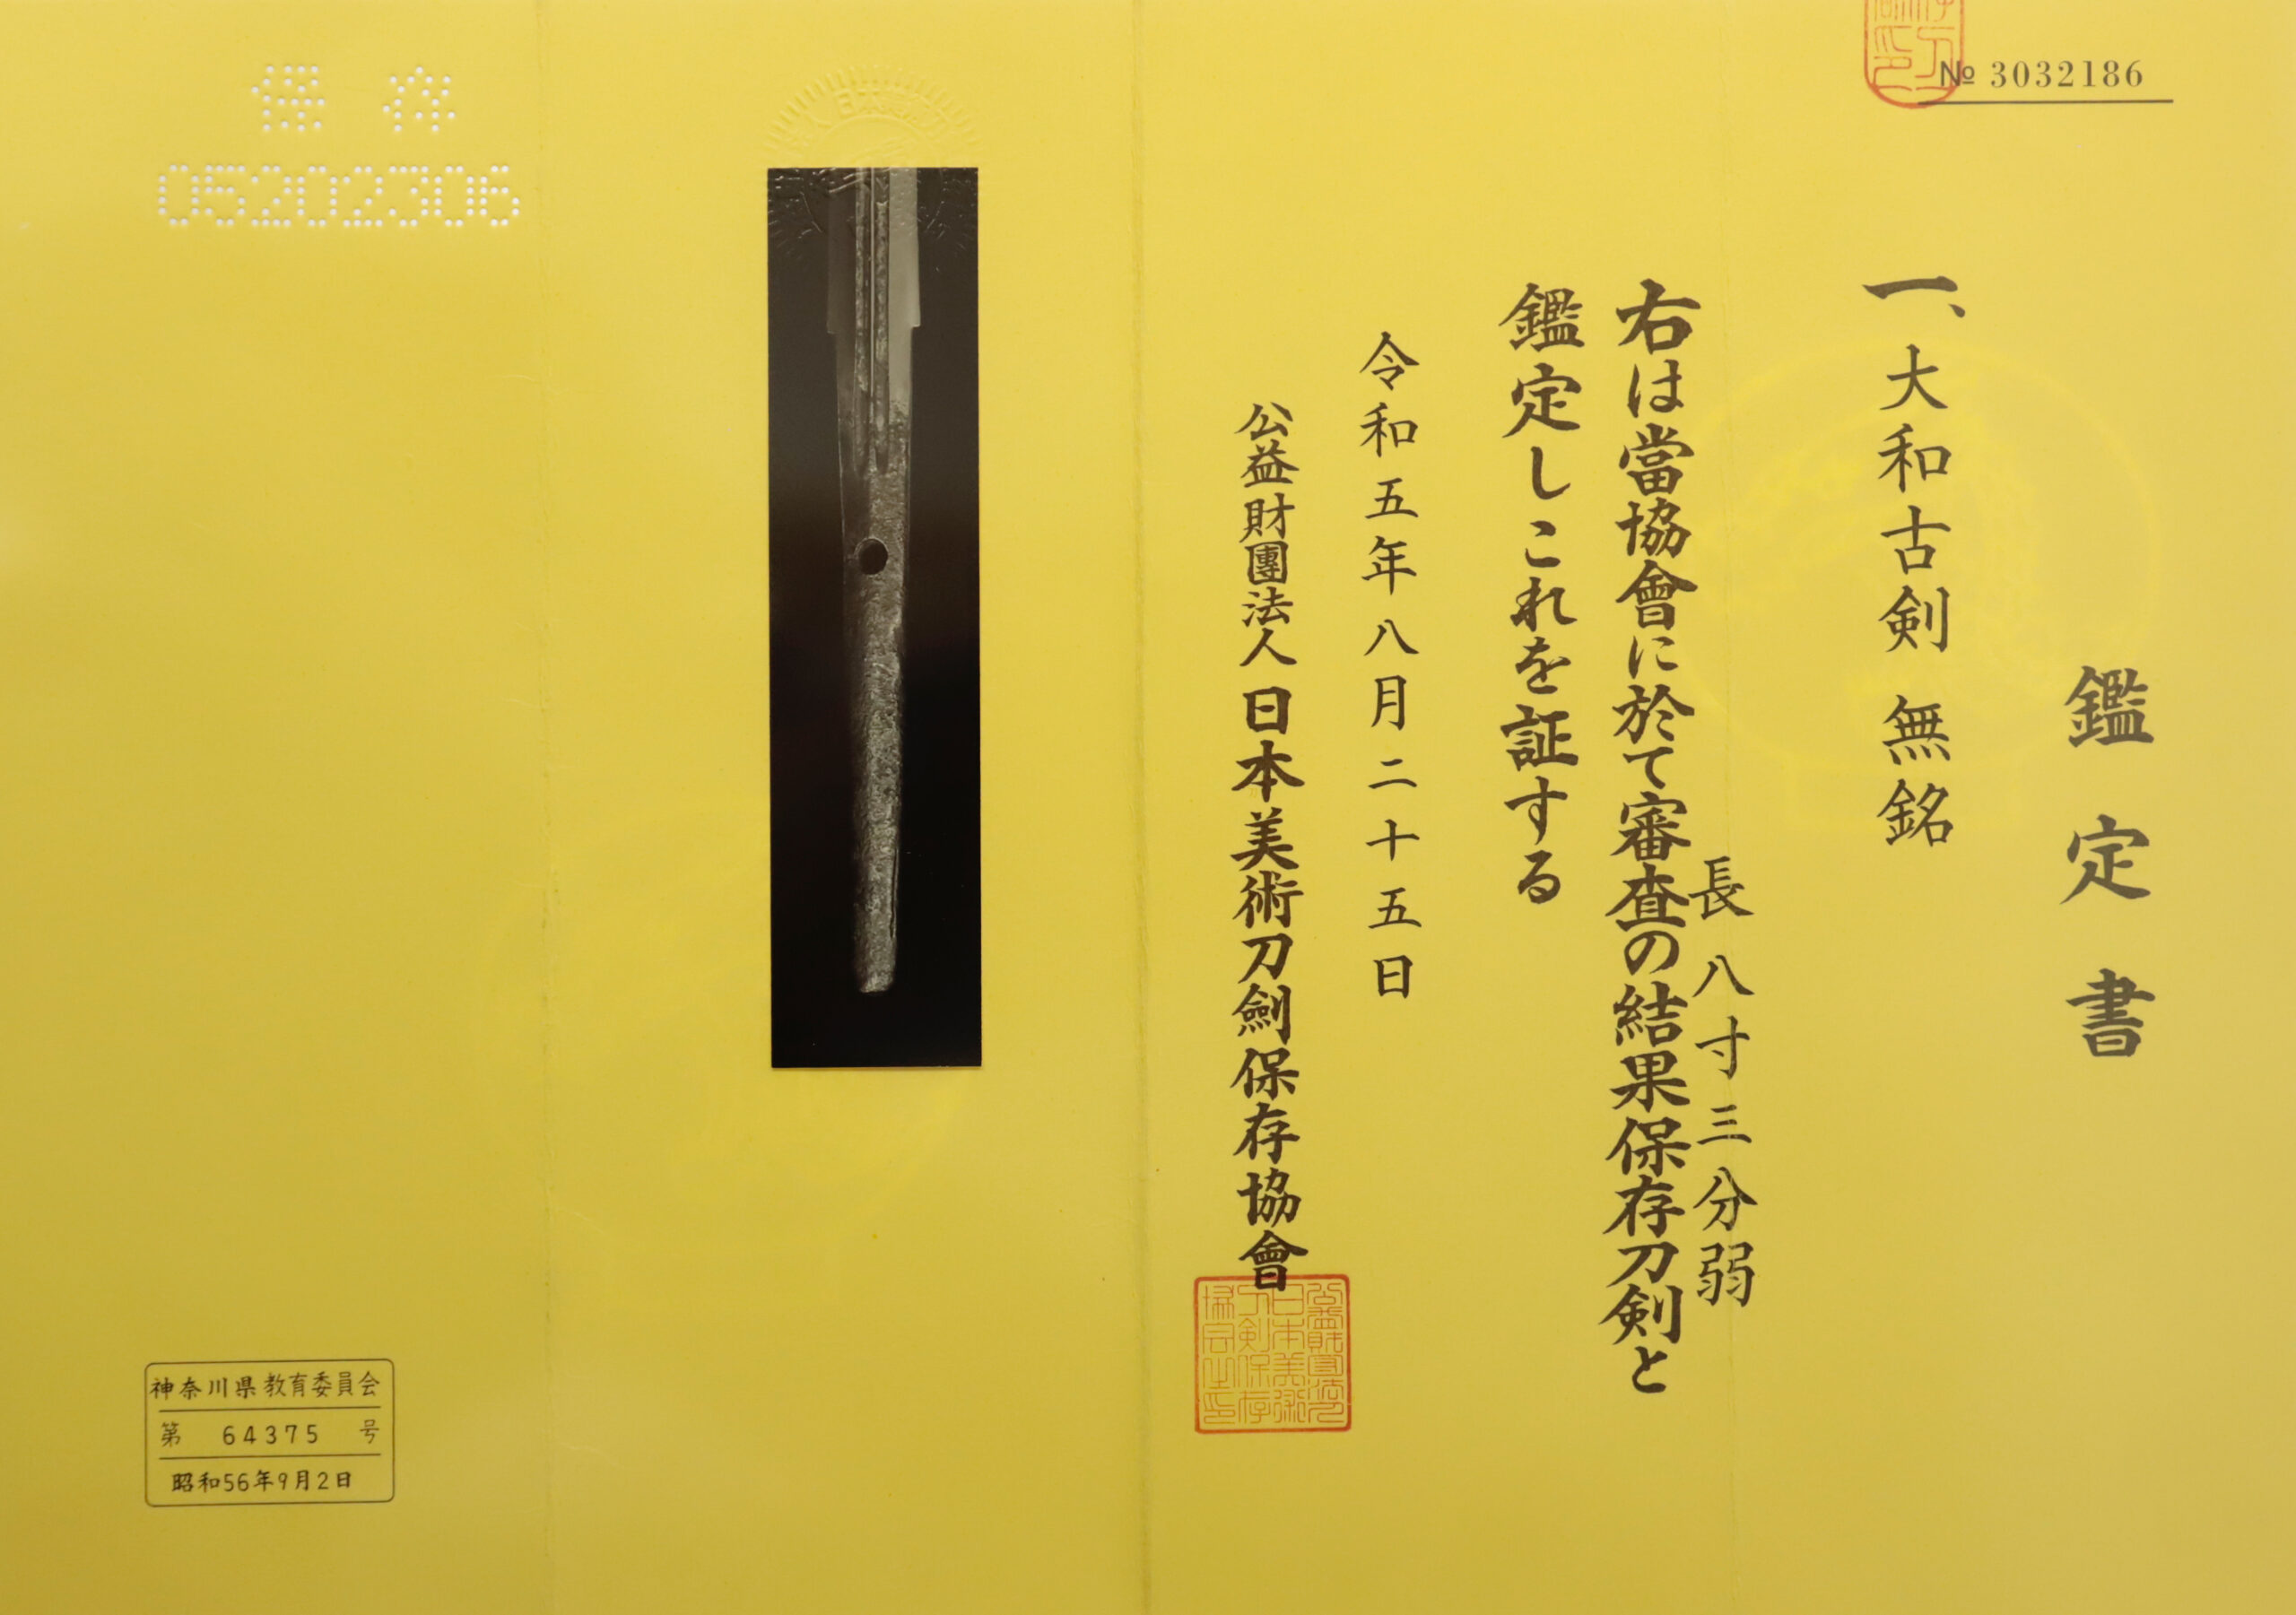 № 3032186
鑑定書
一、大和古剣 無銘
長八寸三分弱
右は當協會に於て審査の結果保存刀剣と
鑑定しこれを証する
令和五年八月二十五日
公益財團法人日本美術刀劍保存協會
保存
05202306
神奈川県教育委員会
第 64375 号
昭和56年9月2日